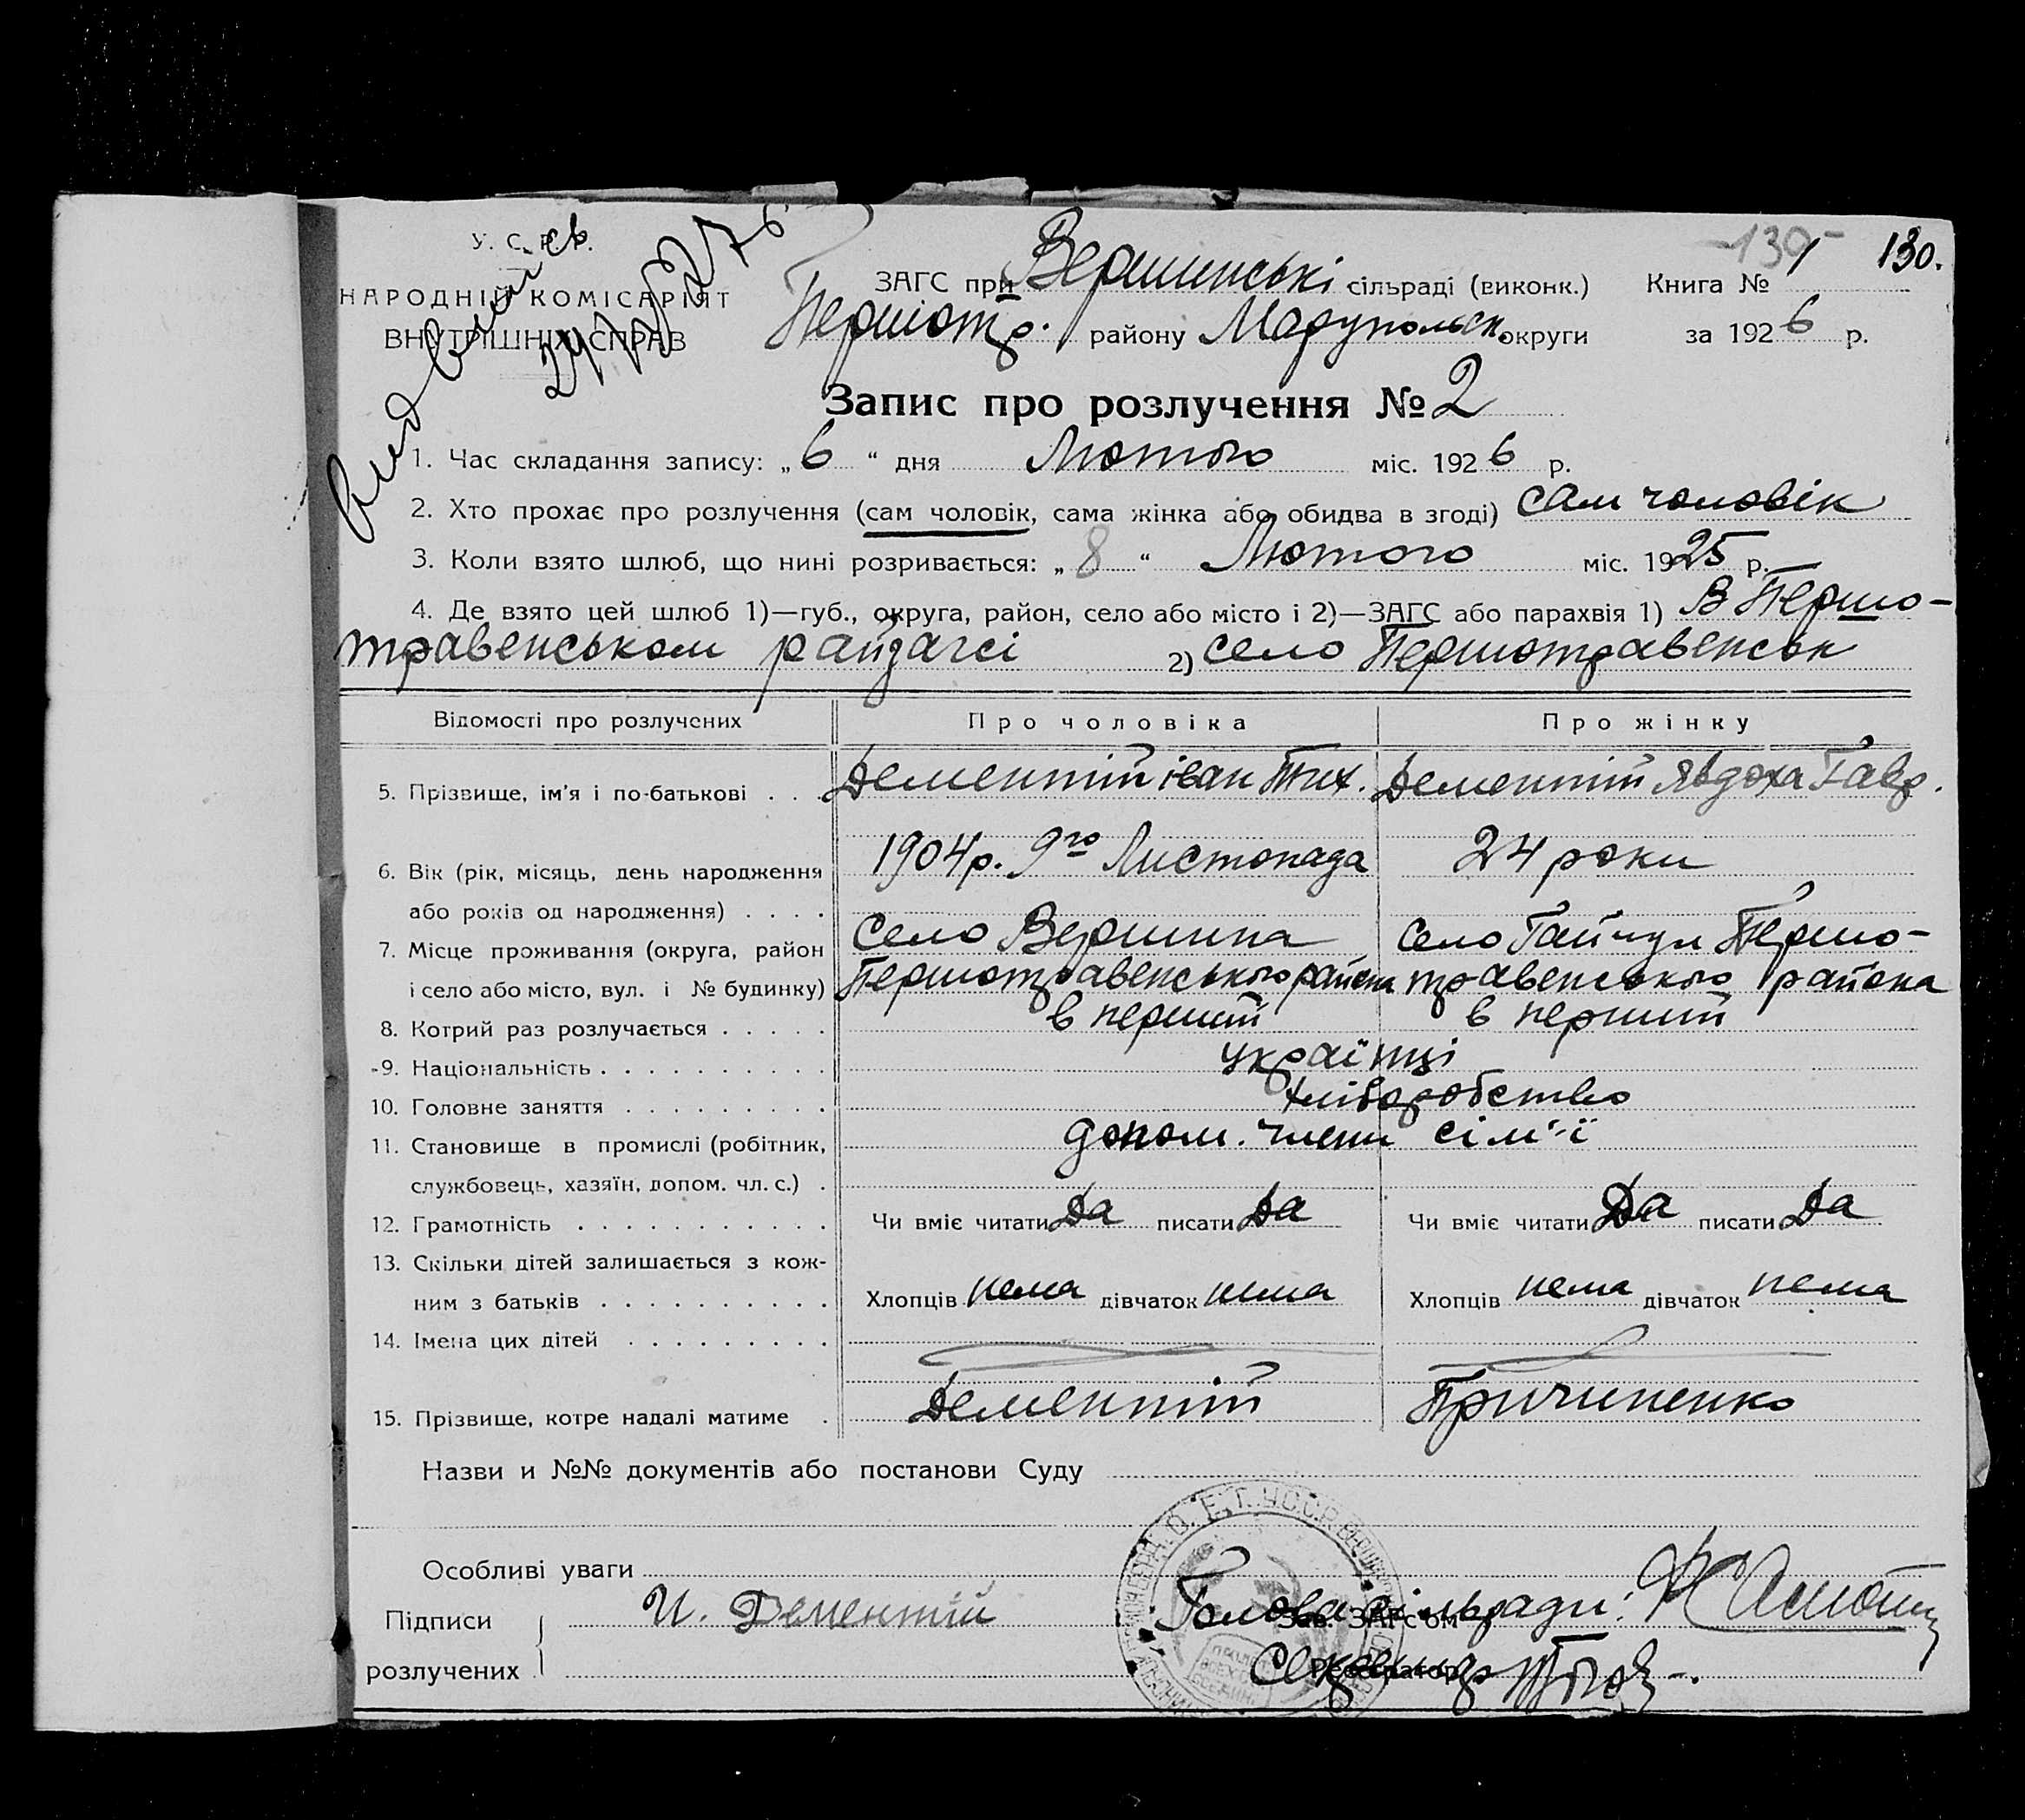 У. С. Р. Р.
НАРОДНІЙ КОМІСАРІЯТ
ВНУТРІШНІХ СПРАВ
130.
ЗАГС при Вершинські сільраді (виконк.) Книга № 1
Першотр. району Марупольськ. округи за 1926 р.
Запис про розлучення № 2
1. Час складання запису: „6“ дня Лютого міс. 1926 р.
2. Хто прохає про розлучення (сам чоловік, сама жінка або обидва в згоді) сам чоловік
3. Коли взято шлюб, що нині розривається: „8“ Лютого міс. 1925 р.
4. Де взято цей шлюб 1)—губ., округа, район, село або місто і 2)—ЗАГС або парахвія 1) В Першо-
травенськом райзагсі 2) село Першотравенськ
Відомості про розлучених Про чоловіка Про жінку
5. Прізвище, ім'я і по-батькові . . . Дементій іван Тих. Дементій Явдоха Гавр.
6. Вік (рік, місяць, день народження 1904р. 9го Листопада 24 роки
або років од народження) . . . .
7. Місце проживання (округа, район Село Вершина Село Гайчул Першо-
і село або місто, вул. і № будинку) Першотравенського района травенського района
8. Котрий раз розлучається . . . . . в перший в перший
9. Національність . . . . . . . . . . українці
10. Головне заняття . . . . . . . . . хліборобство
11. Становище в промислі (робітник, допом. члени сім'ї
службовець, хазяїн, допом. чл. с.) .
12. Грамотність . . . . . . . . . . . Чи вміє читати Да писати Да Чи вміє читати Да писати Да
13. Скільки дітей залишається з кож-
ним з батьків . . . . . . . . . . Хлопців нема дівчаток нема Хлопців нема дівчаток нема
14. Імена цих дітей . . . . . . . . .
15. Прізвище, котре надалі матиме . Дементій Причиненко
Назви и №№ документів або постанови Суду
Особливі уваги
Підписи И. Дементій Голова сільради:
Зав. ЗАГС'ом
розлучених Секретар
Реєстратор